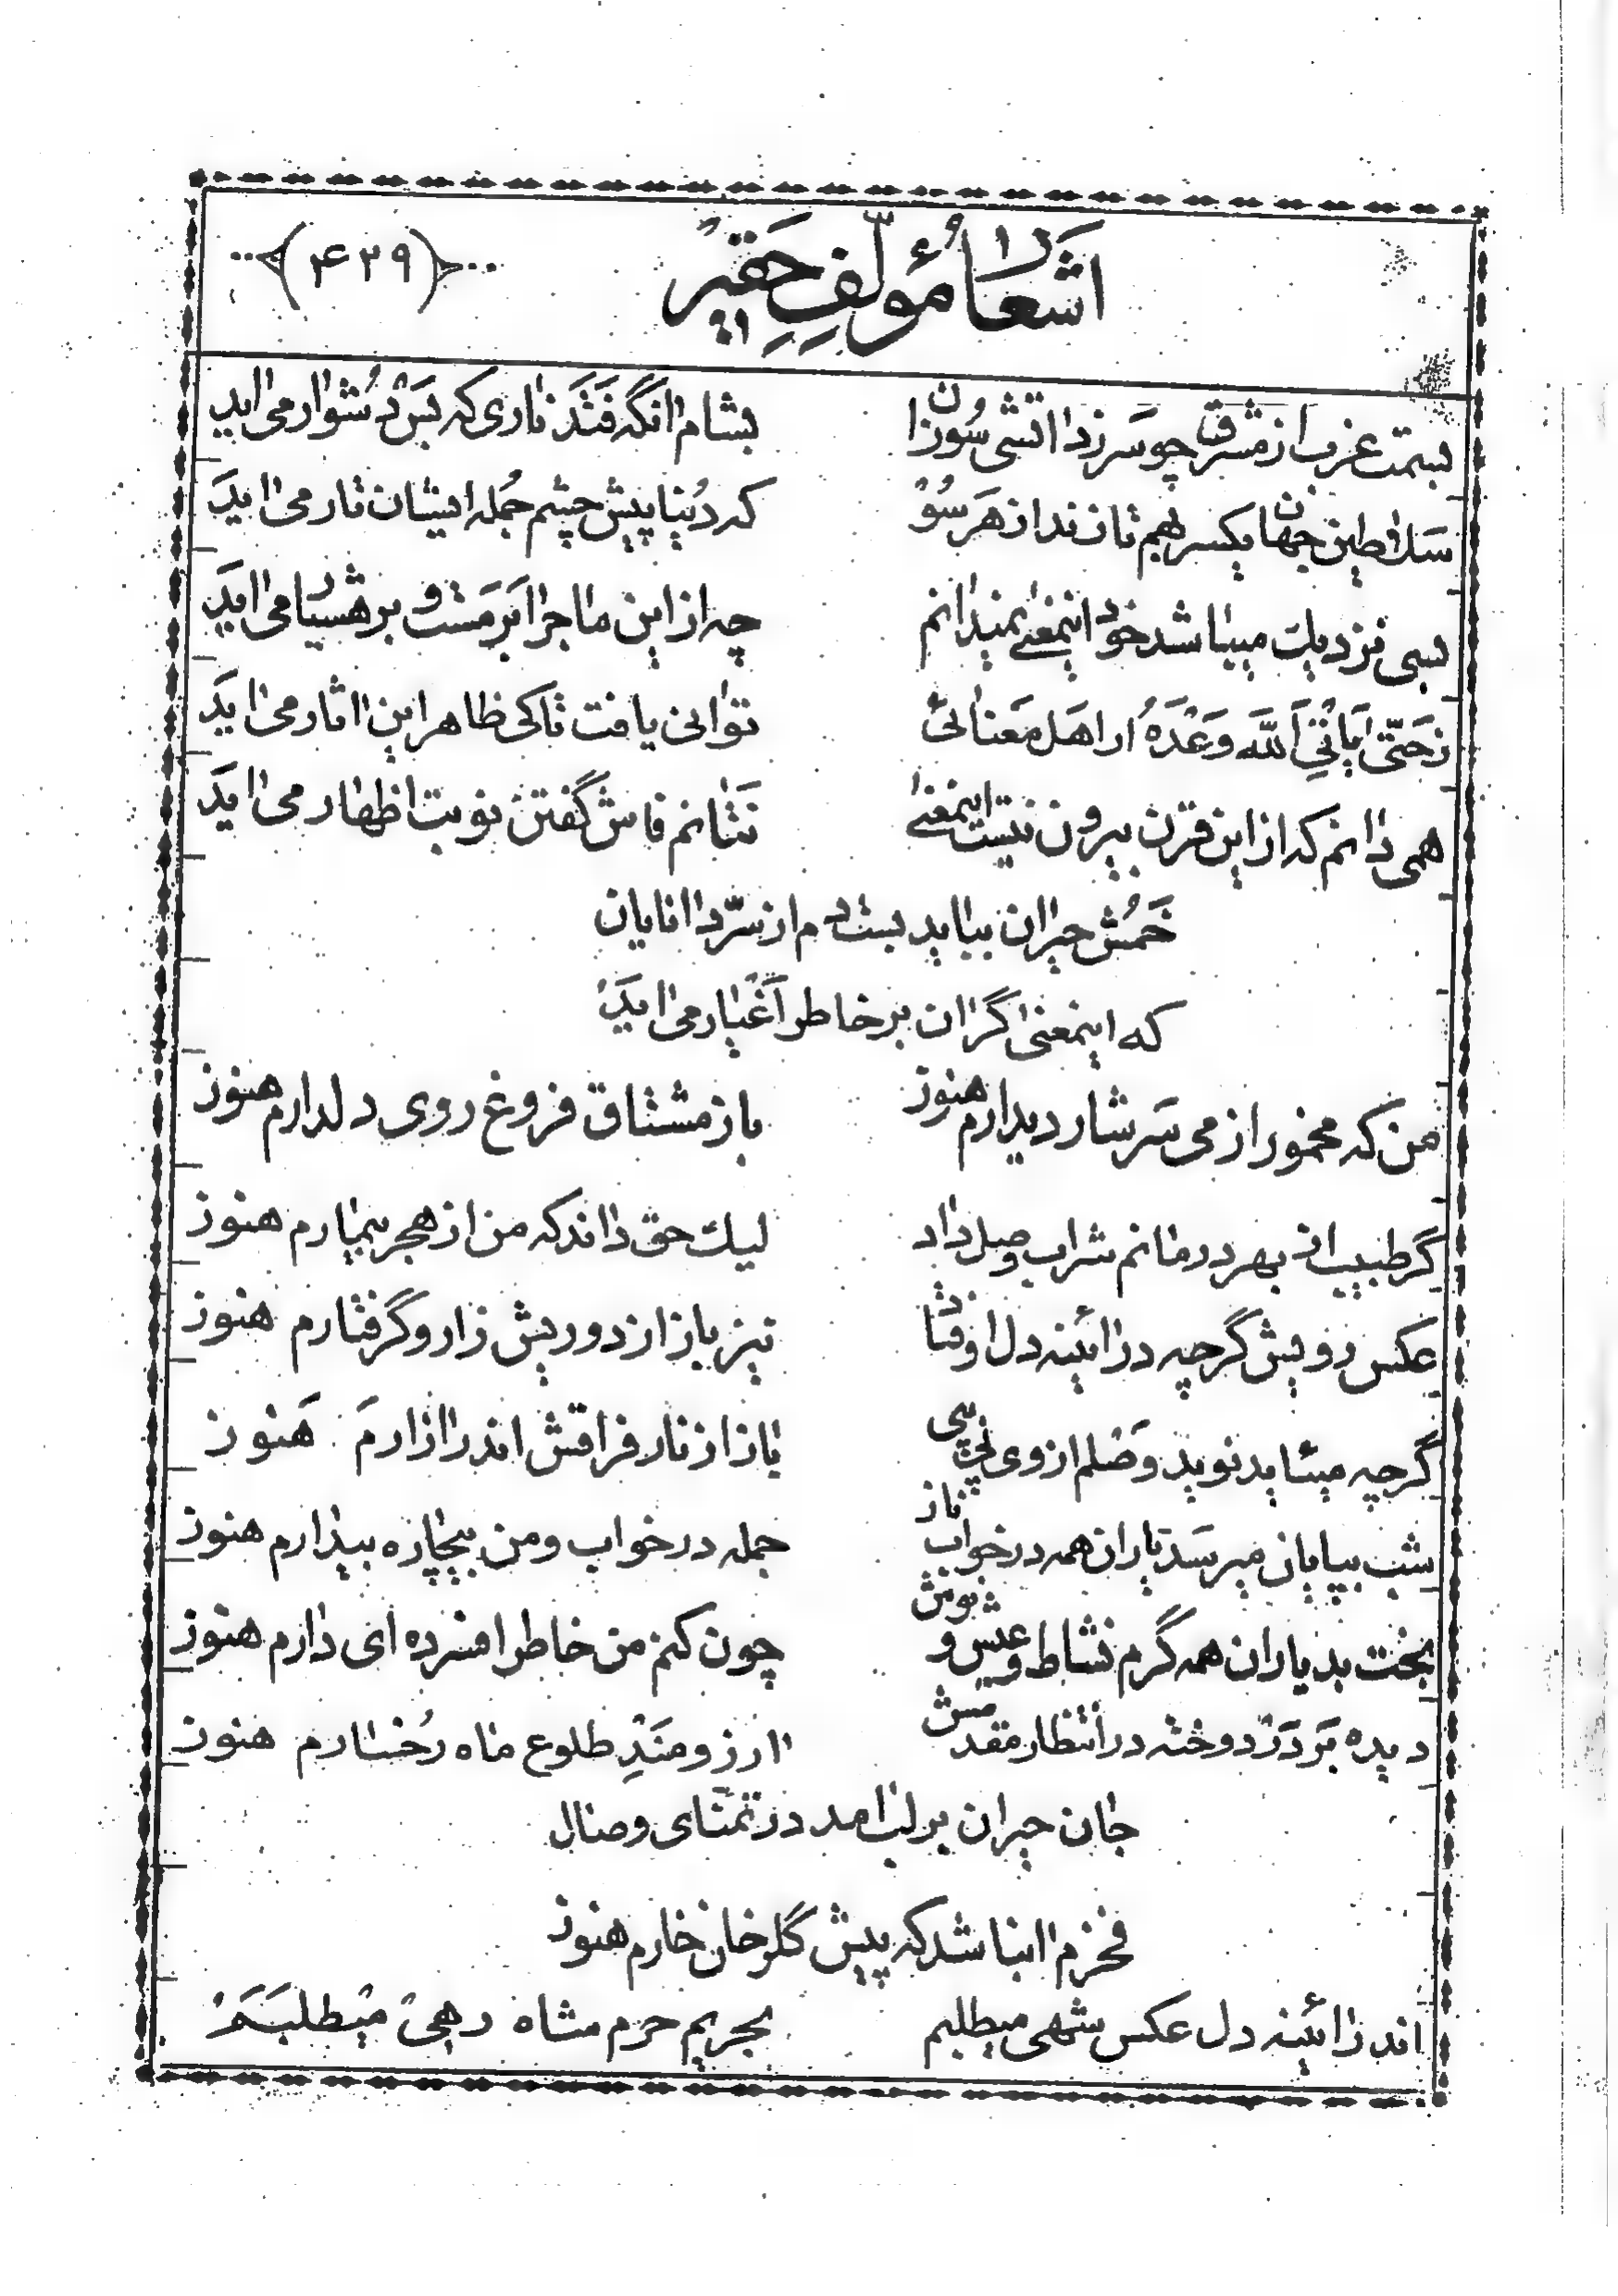 اشعار مؤلّفِ حَقیر
﴿۴۳۹﴾
بسمت غرب از مشرق چو سَر زد آتشی سُوزان بشام آنگه فَتَد ناری که بَس دُشوار می آید
سَلاطین جهان یکسر بهم تازند از هَر سُو که دُنیا پیش چشم جُمله ایشان تار می آیَد
بسی نزدیک میباشد خود اینمعنی نمیدانم چه از این ماجرا بَر مَست و بر هشیار می آیَد
ز حَتّی یَأتِیَ اللّه وَعْدَهُ ار اهَل مَعنائی توانی یافت تا کی ظاهر این آثار می آیَد
همی دانم که از این قرن بیرون نیست اینمعنی نَتانم فاش گفتن نوبت اظهار می آیَد
خَمُش حیران بباید بست دم از سرّ دانایان
که اینمعنی گران بر خاطر اَغْیار می آیَد
من که مخمور از می سَرشار دیدارم هنوز باز مشتاق فروغ روی دلدارم هنوز
گر طبیب از بهر درمانم شراب وصل داد لیك حق داند که من از هجر بیمارم هنوز
عکس رویش گرچه در آئینه دل اوفتاد نیز باز از دوریش زار و گرفتارم هنوز
گرچه میآید نوید وَصْلم از وی پی بپی باز از نار فراقش اندر آزارم هَنوز
شب بپایان میرسَد یاران همه در خواب ناز جمله در خواب و من بیچاره بیدارم هنوز
بخت بد یاران همه گرم نشاط و عیش و نوش چون کنم من خاطر افسرده ای دارم هنوز
دیده بَر دَر دوخته در انتظار مقدمش آرزومَنْدِ طلوع ماه رُخسارم هنوز
جان حیران بر لب آمد در تمنّای وصال
فخرم اینا شد که پیش گلرخان خارم هنوز
اندر آئینه دل عکس شهی میطلبم بحریم حرم شاه رهی میطلبَم